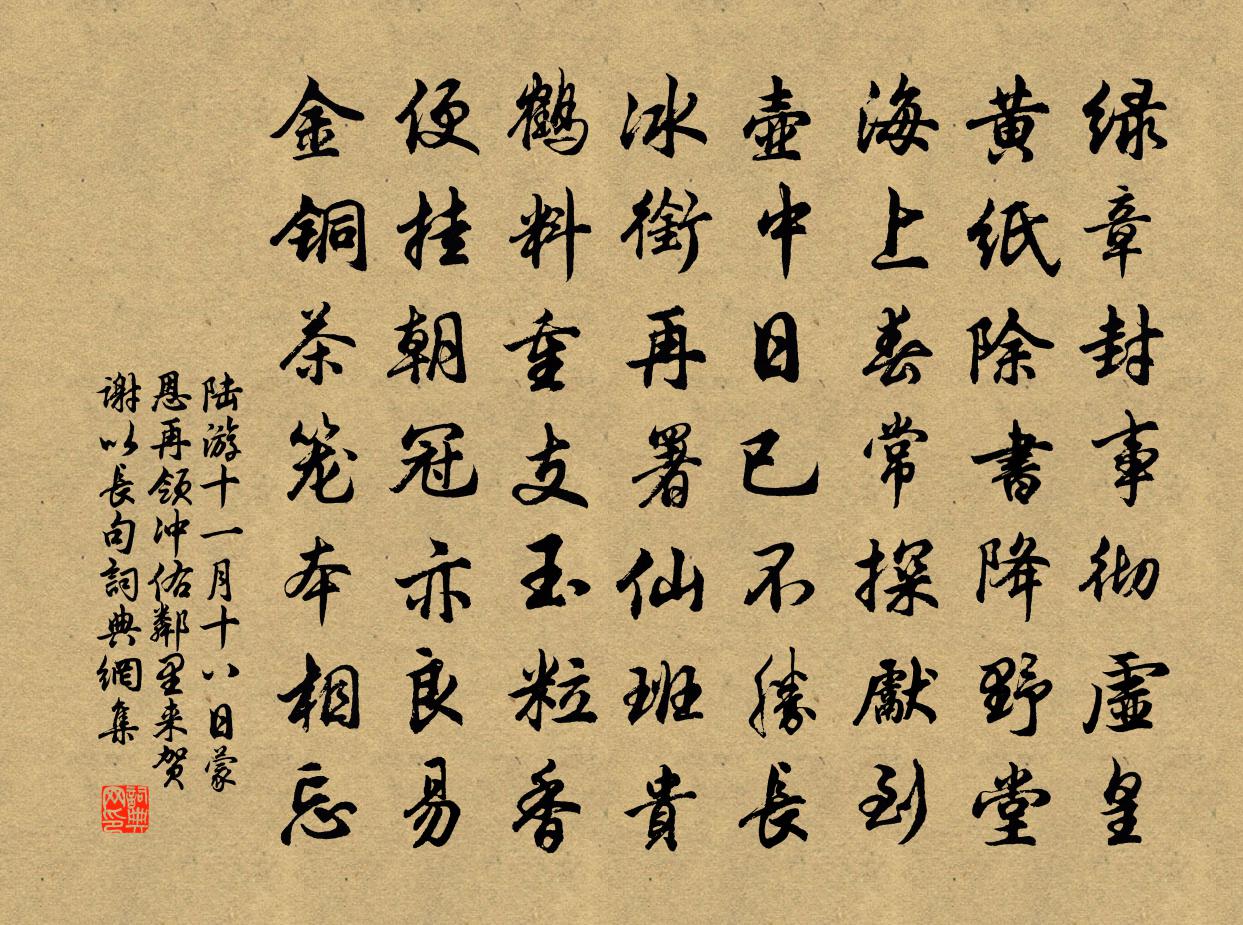 绿章封事彻虚皇
黄纸除書降野堂
海上春常探獻到
壶中日已不勝長
冰銜再署仙班貴
鶴料重支玉粒香
便挂朝冠亦良易
金铜茶笼本相忘
陆游十一月十八日蒙
恩再领冲佑鄰里来贺
谢以長句詞典網集
詞典网印